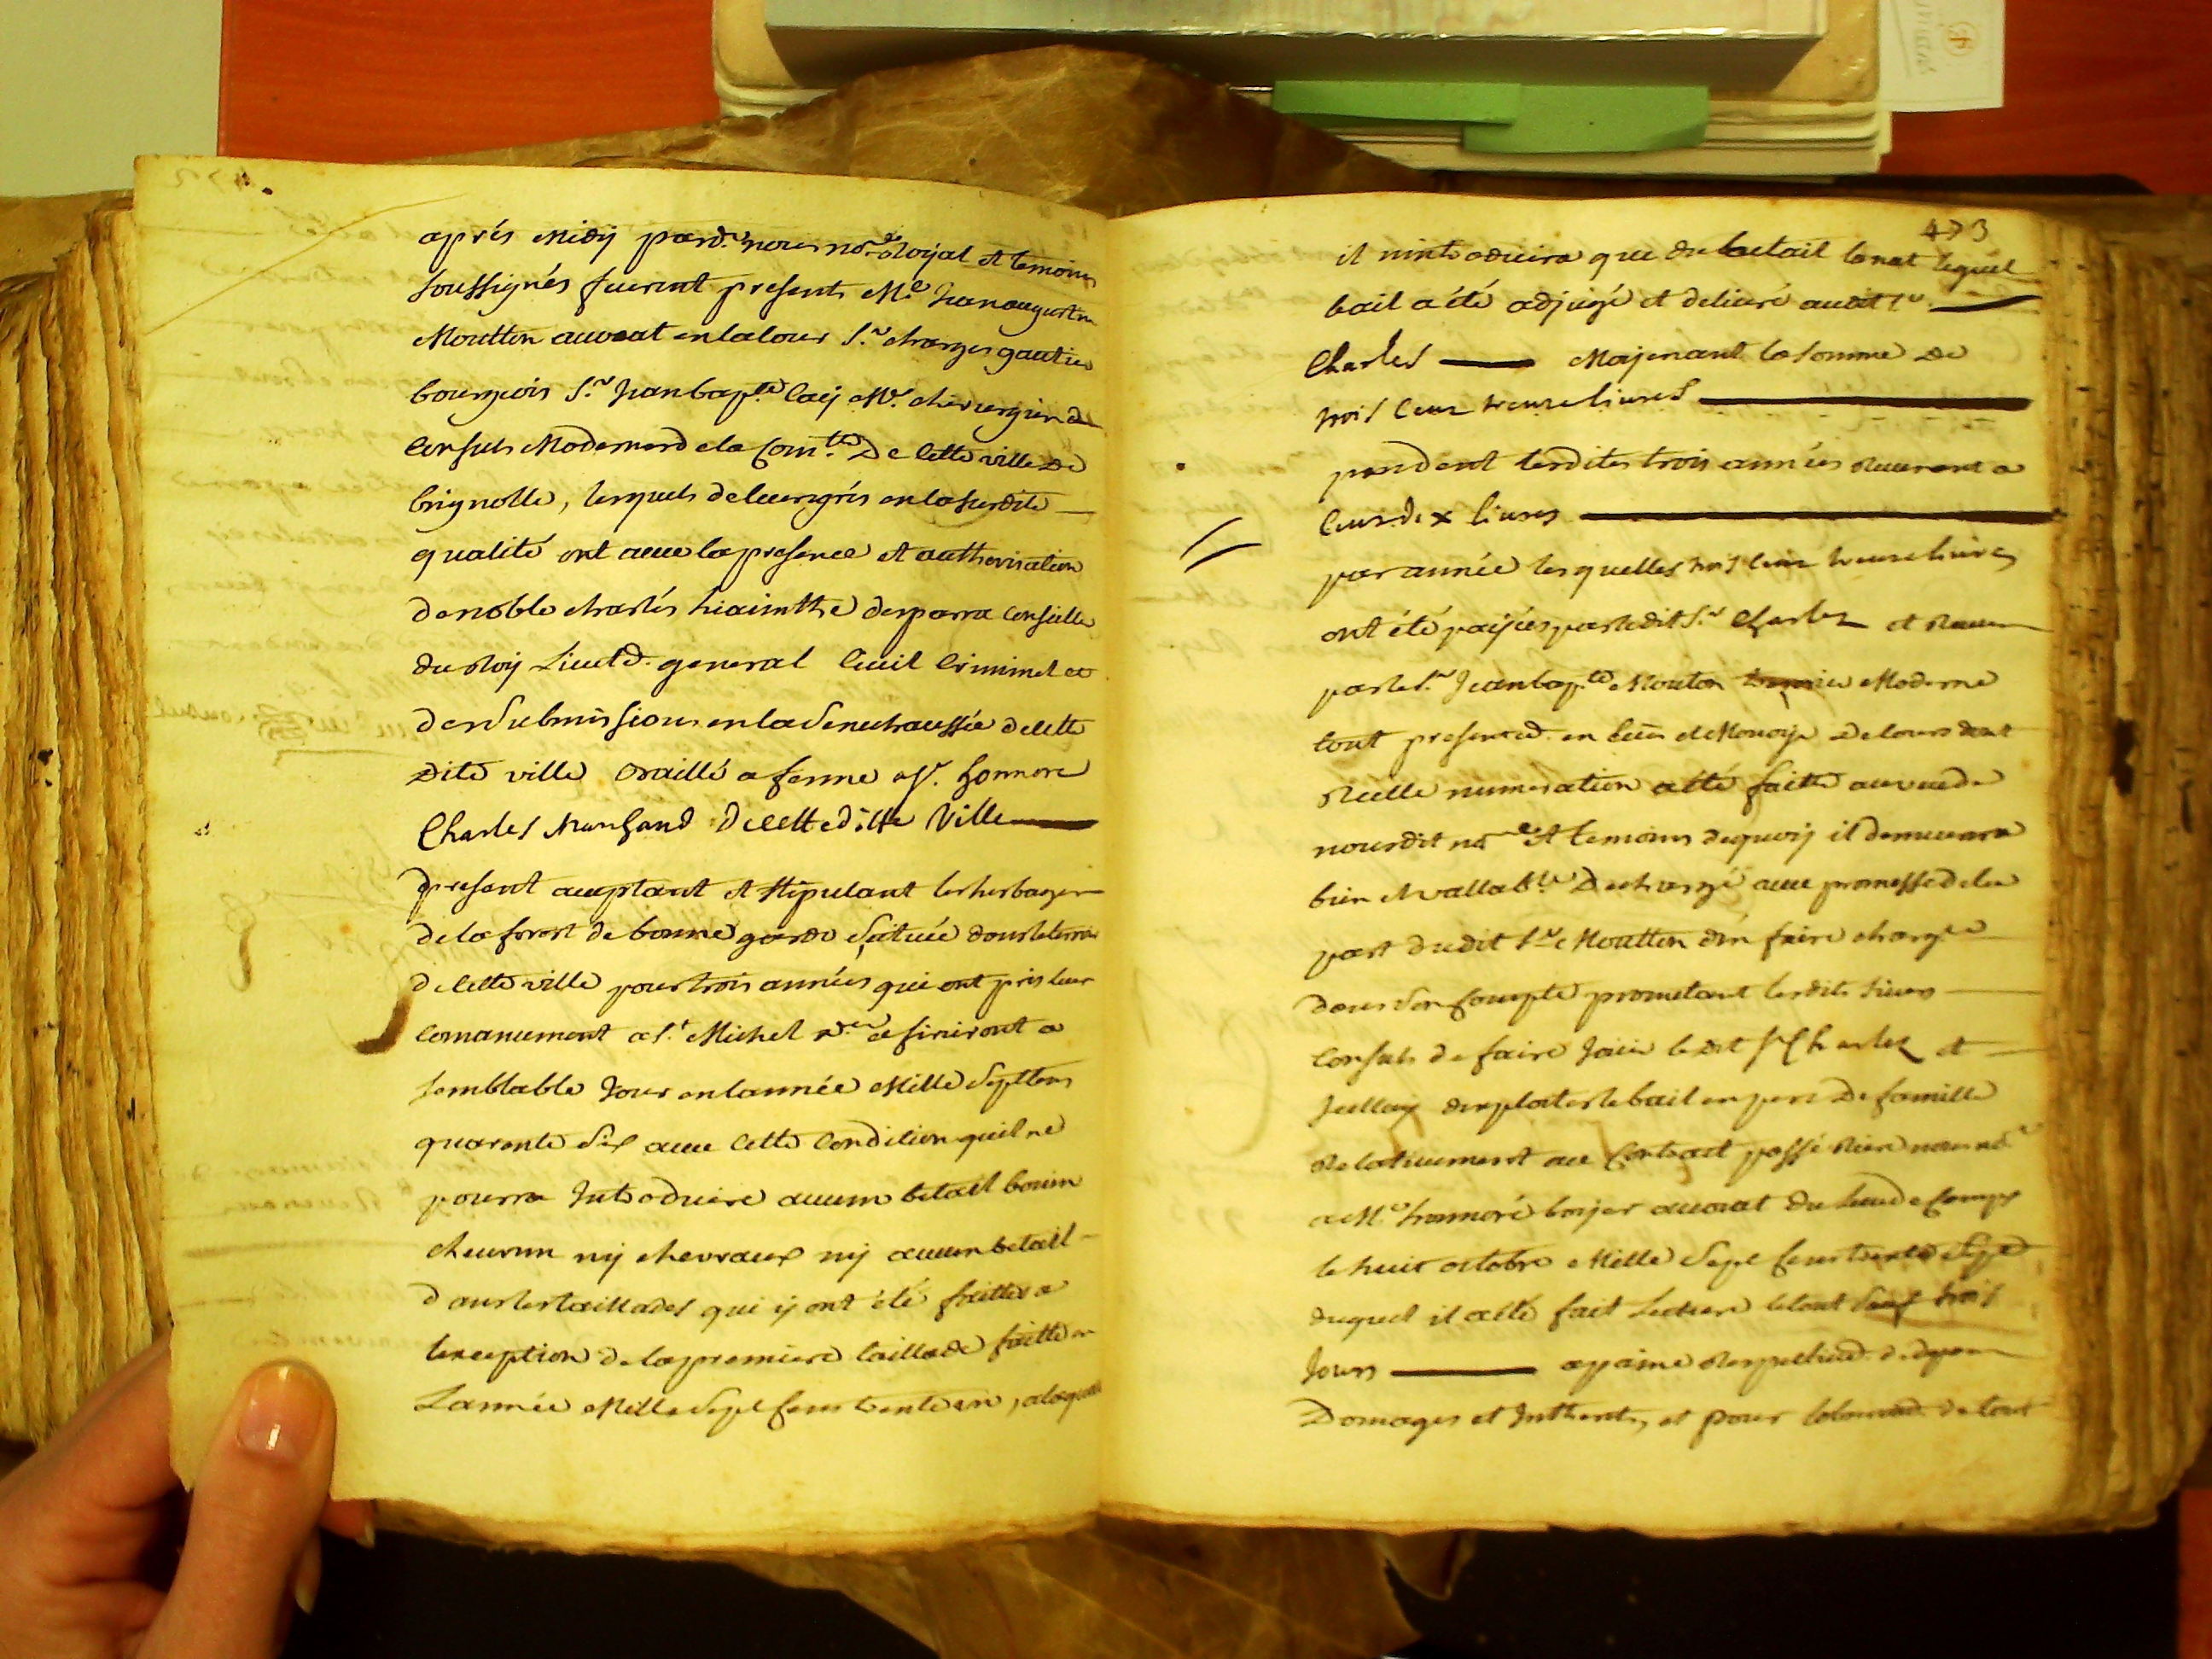 après Midy pard.t nous no.re Royal et temoins
soussignés furent presents M.e Jean augustin
Moutton avocat en la Cour S.r charges gautier
bourgeois S.r Jean bap.te Caij M.e chirurgien
Consuls Modernes de la Com.té De Cette ville De
brignolle, lesquels de leurs grés en la susdite
qualité ont avec la presence et authorisation
de noble charles hiainthe desparra Conseiller
du Roy Lieut.d general Civil Criminel et
des submissions en la seneschaussée de cette
dite ville baillé a ferme a S.r honnoré
Charles Marchand De cette ditte Ville
present acceptant et stipulant les herbages
de la forest de bonne garde scituée dans le terroir
de cette ville pour trois années qui ont pris leur
comancement a S.t Michel d.er et finiront a
semblable Jour en lannée Mille Sept Cens
quarante six avec Cette Condition quil ne
pourra Introduire aucun betail bouin
cheurun ny chevraux ny aucun betail
dans les taillades qui y ont été faittes a
lexeption de la premiere taillade faitte en
Lannée Mille Sept Cens trente un, a laquelle
473
il nintroduira que du betail lanat lequel
bail a été adjugé et delivré audit S.r
Charles Moyenant la somme De
trois Cens trente livres
pendent lesdites trois années Revenant a
Cens dix livres
par année lesquelles trois Cens trente livres
ont été payées par ledit S.r Charles et Receues
par le S.r Jean bap.te Mouton Moderne
tout presente.d en de Monoye De Cours dont
Reelle numeration a été faitte au veu de
nousdit no.re et temoins dequoy il demeurera
bien et vallab.le Dechargé avec promesse de la
part dudit S.r Moutton den faire charge
dans son Compte prometant lesdits sieurs
Consuls de faire Jouir ledit S.r Charles et
Jcelluy dexploiter le bail en pere De famille
Relativement au Contrait passé Riere nous no.re
a M.e honnoré boyer avocat du
le huit octobre Mille Sept Cens trente Sept
duquel il a été fait Lecture le tout trois
Jours a peine Respective de depens
Domages et Intherets, et pour de tout